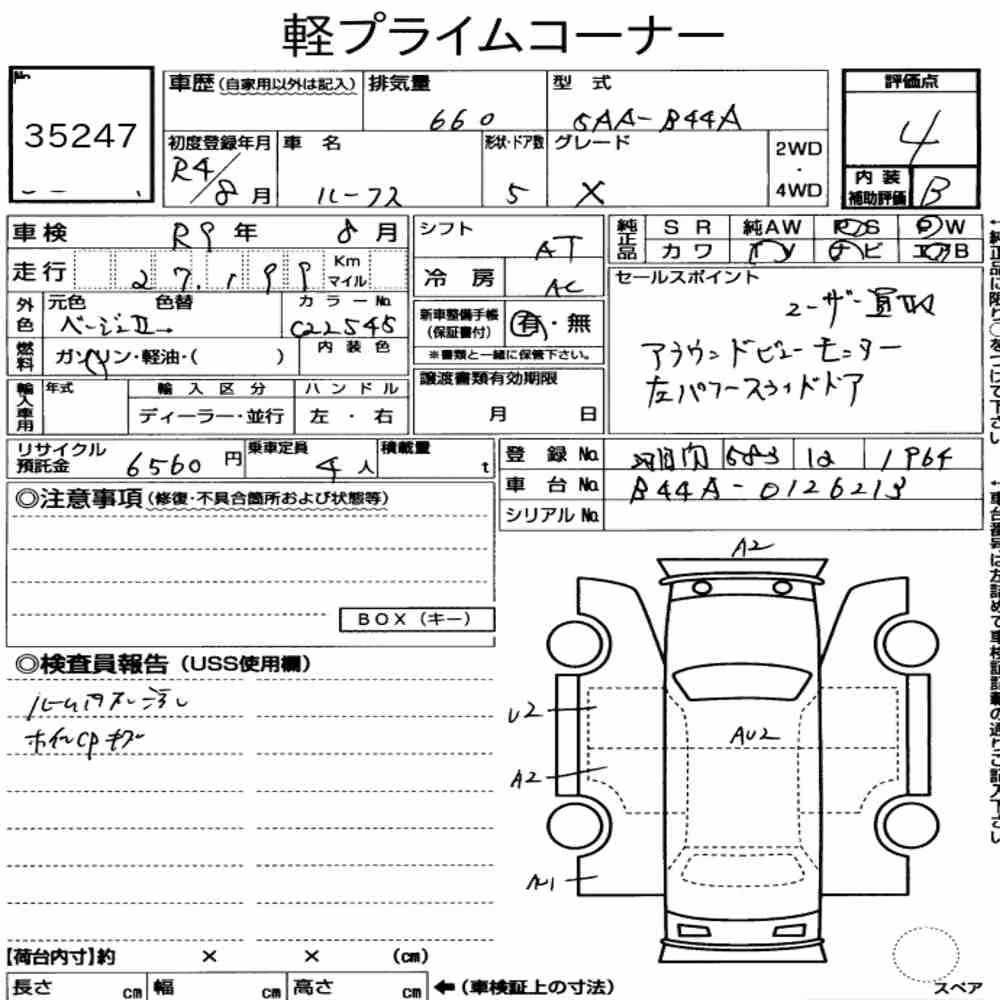 軽プライムコーナー
No.
35247
車歴(自家用以外は記入) 排気量 型 式
660 5AA-B44A
初度登録年月 車 名 形状・ドア数 グレード 2WD ・ 4WD
R4/8月 ルークス 5 X
評価点
4
内装補助評価 B
車検 R9年 8月
走行 27,199 Km マイル
外色 元色 色替 カラーNo.
ベージュII→ C22545
燃料 ガソリン・軽油・( ) 内装色
輸入車用 年式 輸入区分 ハンドル
ディーラー・並行 左・右
シフト AT
冷房 AC
新車整備手帳(保証書付) 有・無
※書類と一緒に保管下さい。
譲渡書類有効期限
月 日
純正品 SR 純AW PS PW
カワ TV ナビ エアB
セールスポイント
ユーザー買取
アラウンドビューモニター
左パワースライドドア
リサイクル預託金 6560円 乗車定員 4人 積載量 t
登録No. 583 1964
車台No. B44A-0126213
シリアルNo.
◎注意事項(修復・不具合箇所および状態等)
BOX(キー)
◎検査員報告(USS使用欄)
ルーム内スレ汚レ
ホイルCPキズ
A2
U2
AU2
A2
AU1
【荷台内寸】約 × × (cm)
長さ cm 幅 cm 高さ cm ←(車検証上の寸法)
スペア
↑純正品に限り○をつけて下さい
↑車台番号は左詰めで車検証記載の通りご記入下さい